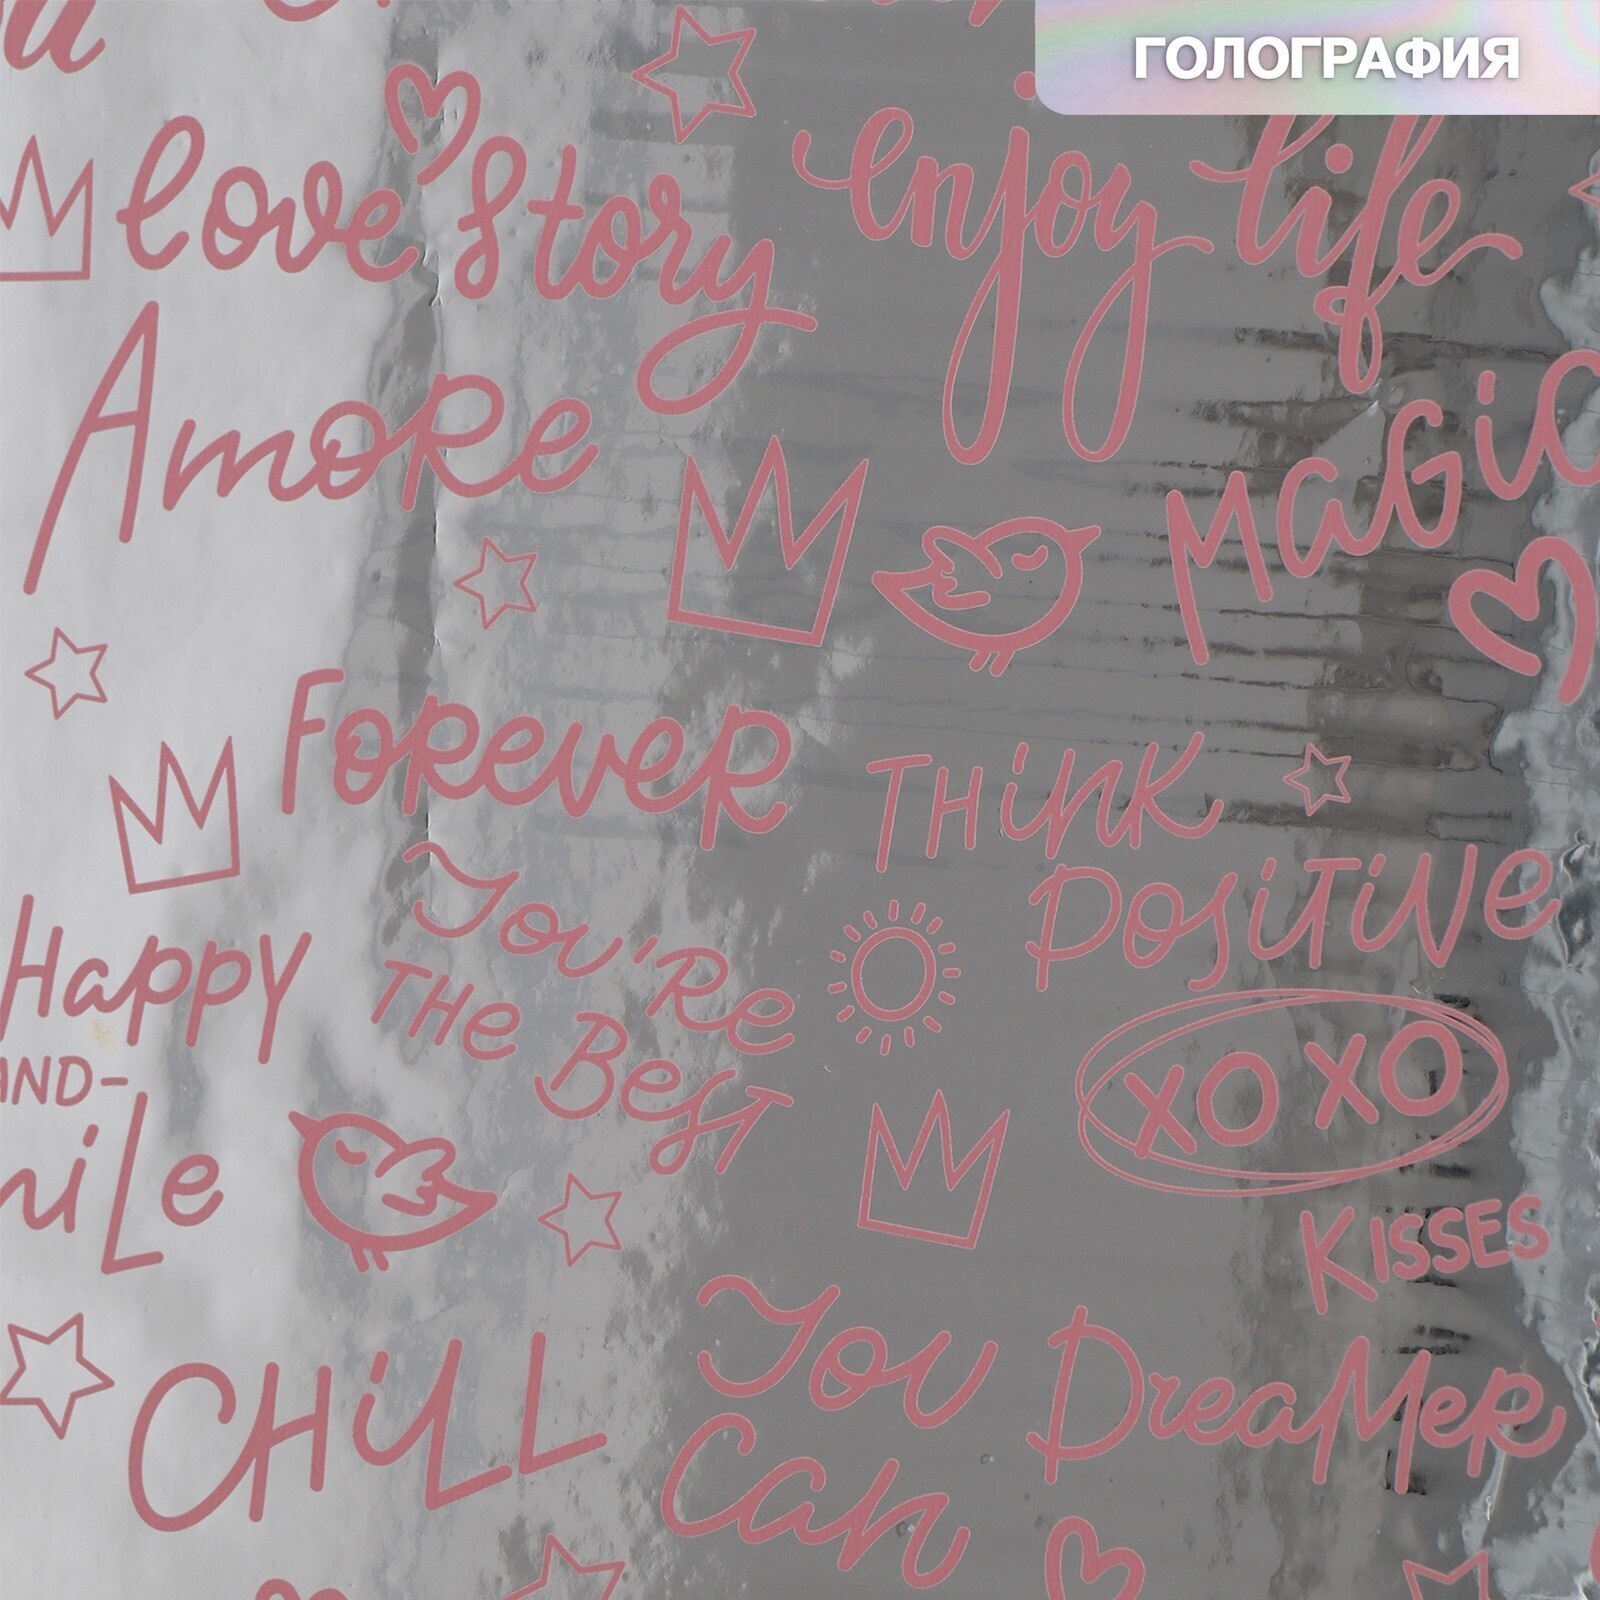 ГОЛОГРАФИЯ
love story
enjoy life
AmoRe
MaGiC
FoReveR
THiNK
POSiTiVe
Happy
AND-
You'Re
THe BeST
XO XO
KISSES
CHiLL
You
Can
DreaMeR